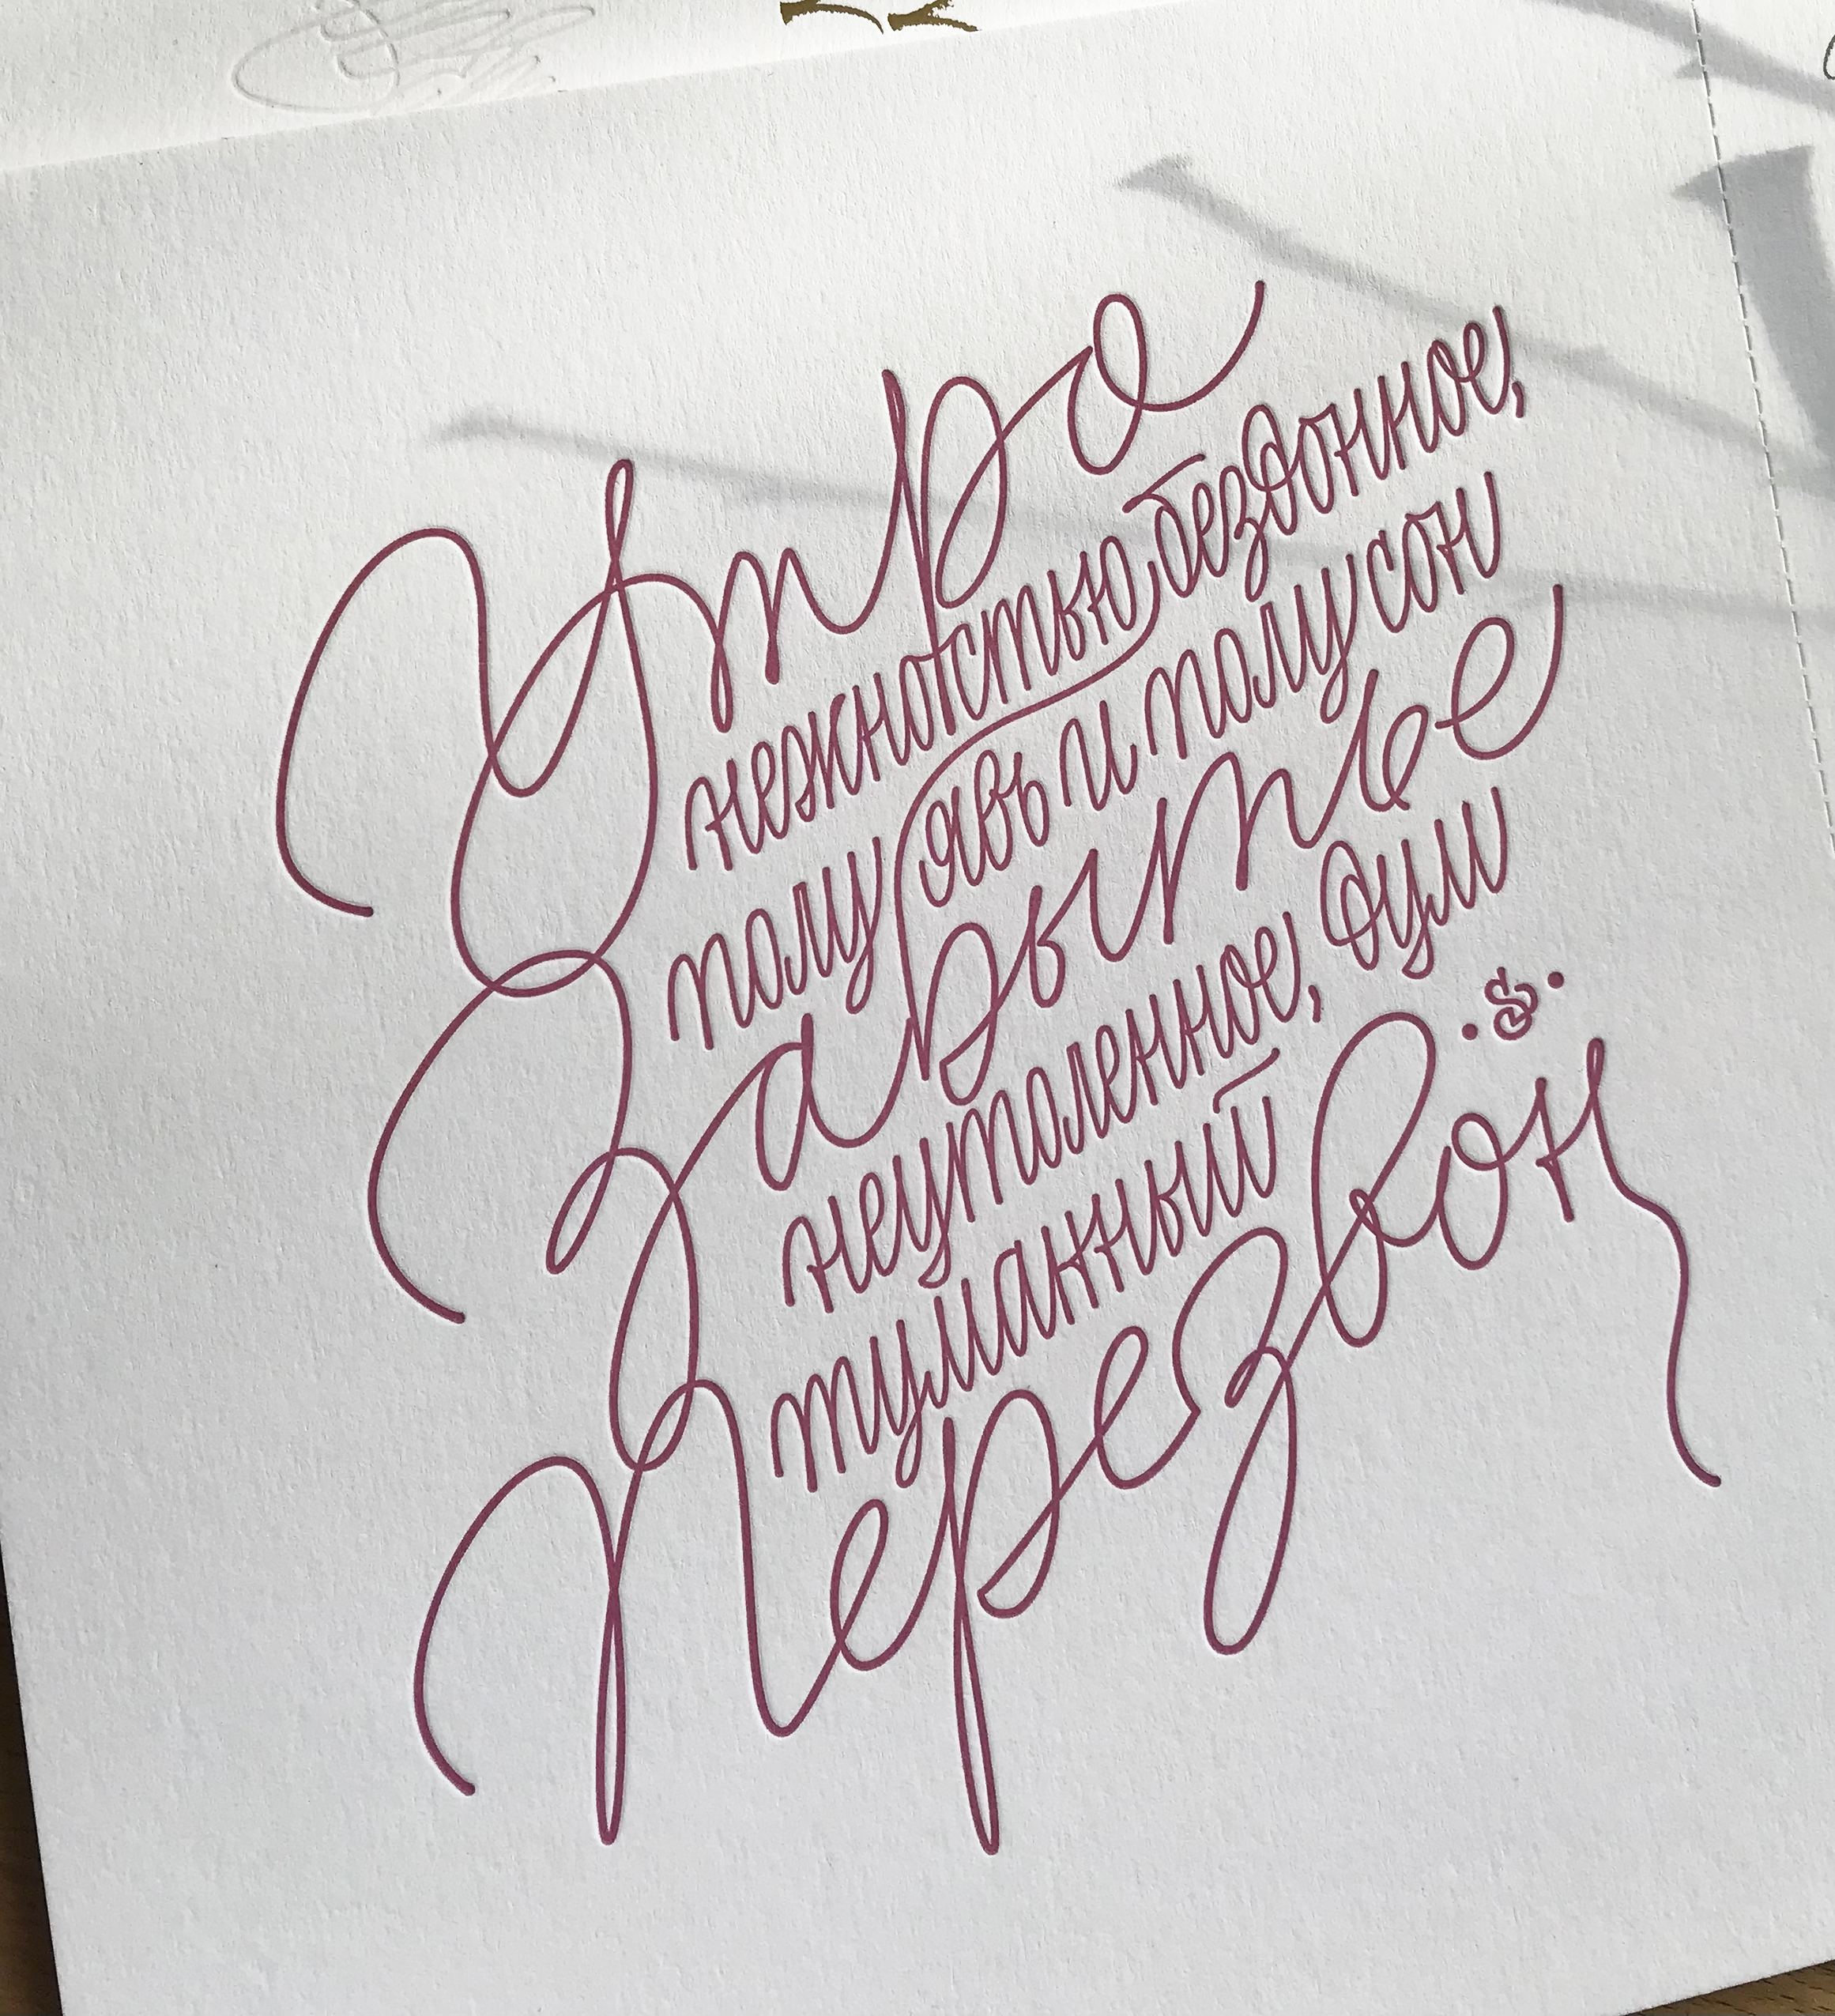 Утро
нежностью бездонное,
полуявь и полусон
Забытье
неутоленное, дум
туманный
Перезвон